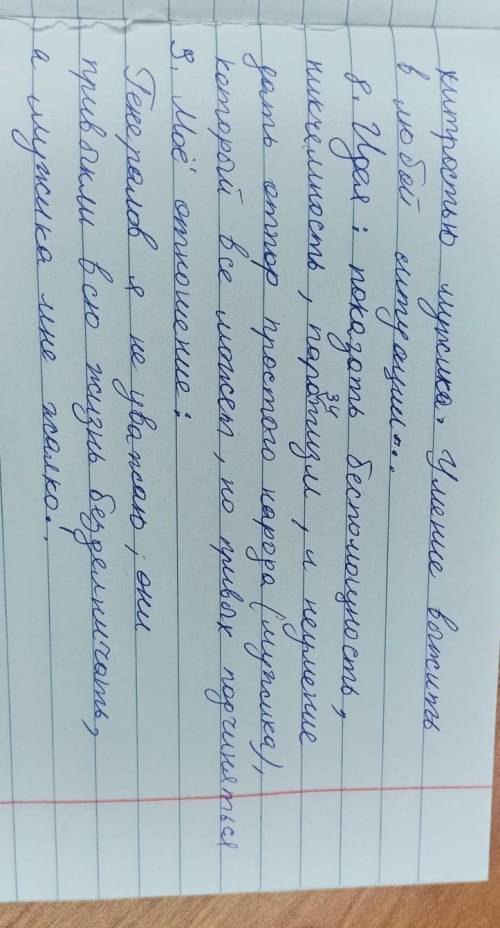 хитростью мужика. Умение выжить
в любой ситуации...
8. Идея: показать беспомощность,
никчемность, паразитизм, и неумение
дать отпор простого народа (мужика),
который все может, но привык подчиняться
9. Моё отношение:
Генералов я не уважаю, они
привыкли всю жизнь бездельничать,
а мужика мне жалко.